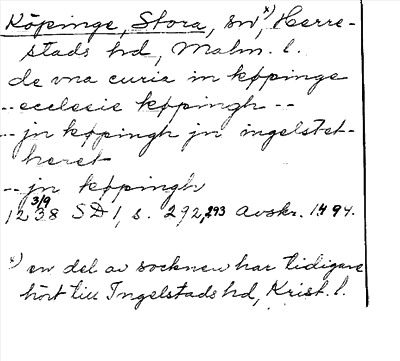 Köpinge, Stora, sn x), Herre-
stads hd, Malm. l.
de vna curia in køpinge
-- ecclesie køpingh --
-- jn køpingh jn ingelstet-
heret
-- jn køpingh
3/9
1238 SD 1, s. 292, 293 Avskr. 1494.
x) en del av socknen har tidigare
hört till Ingelstads hd, Krist. l.